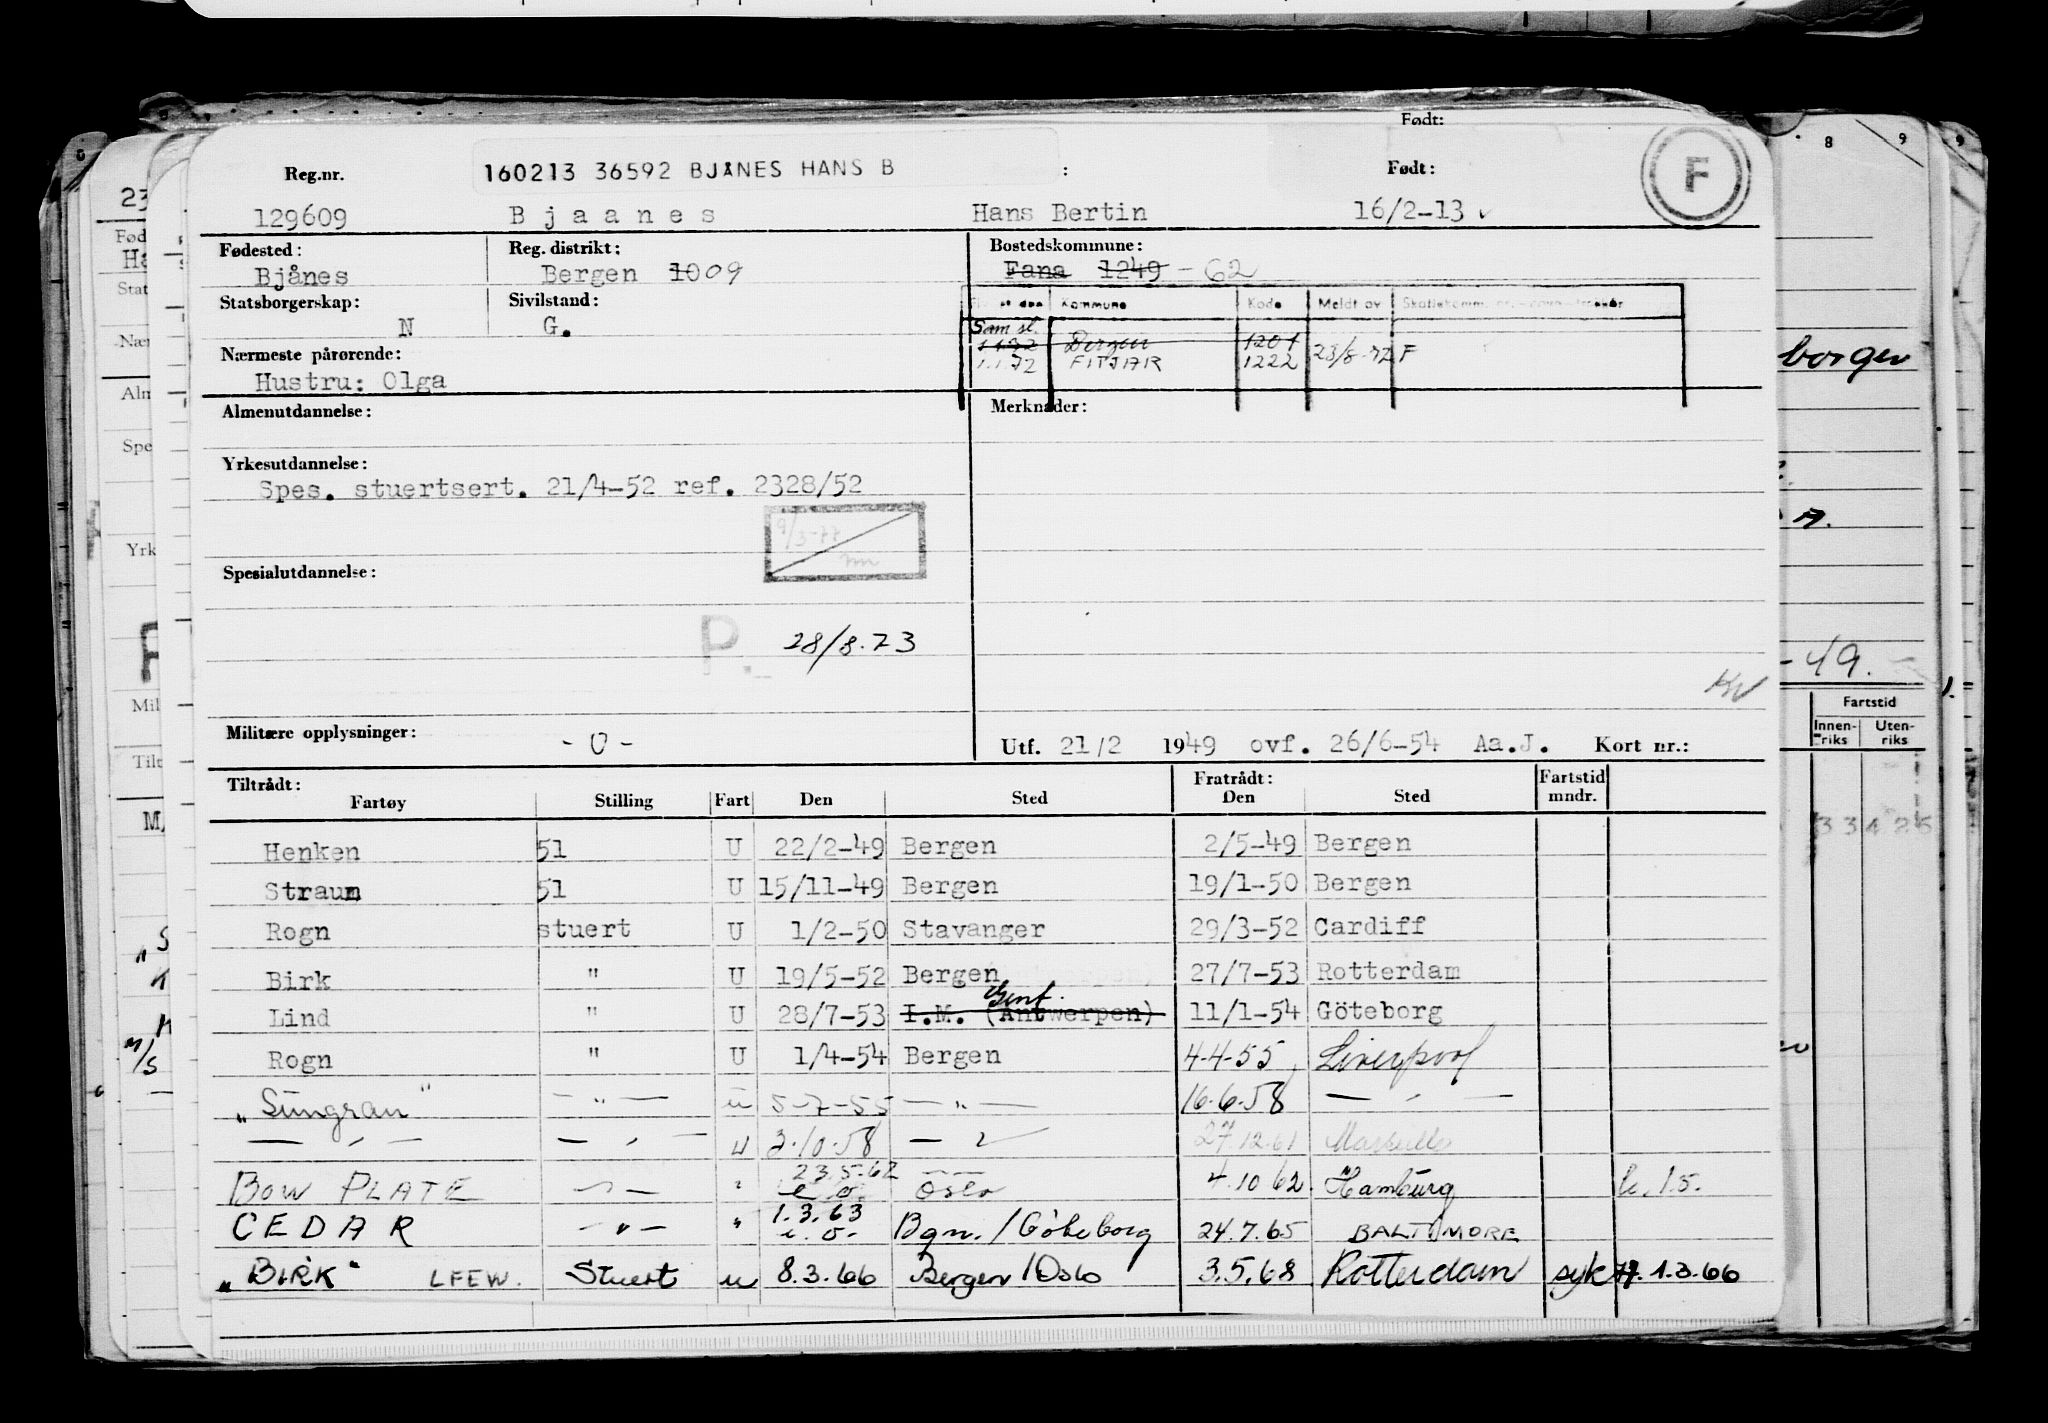 Født:
Reg.nr. 160213 36592 BJÅNES HANS B : Født: F
129609 Bjaanes Hans Bertin 16/2-13
Fødested: Reg. distrikt: Bostedskommune:
Bjånes Bergen 10 09 Fana 1249 - 62
Statsborgerskap: Sivilstand: Kommune Kode Meldt av
N G. Sam sl.
1.1.32 Bergen 1201
Nærmeste pårørende: 1.1.72 FITJAR 1222 23/8-72 F
Hustru: Olga
Almenutdannelse: Merknader:
Yrkesutdannelse:
Spes. stuertsert. 21/4-52 ref. 2328/52
9/3-77
Spesialutdannelse:
P. 28/8.73
Militære opplysninger: - 0 - Utf. 21/2 1949 ovf. 26/6-54 Aa.J. Kort nr.:
Tiltrådt: Fratrådt: Fartstid
Fartøy Stilling Fart Den Sted Den Sted mndr.
Henken 51 U 22/2-49 Bergen 2/5-49 Bergen
Straum 51 U 15/11-49 Bergen 19/1-50 Bergen
Rogn stuert U 1/2-50 Stavanger 29/3-52 Cardiff
Birk " U 19/5-52 Bergen 27/7-53 Rotterdam
Gent.
Lind " U 28/7-53 I.M. (Antwerpen) 11/1-54 Göteborg
Rogn " U 1/4-54 Bergen 4-4-55 Liverpool
"Sungran" — " — u 5-7-55 — " — 16.6.58 — " —
— " — — " — u 3.10.58 — " — 27.12.61
23.5.62
BOW PLATE — " — " e.o. Oslo 4.10 62. Hamburg
1.3.63
CEDAR — " — " Bgn. / Göteborg 24.7.65 BALTIMORE
"BIRK" LFEW. Stuert u 8.3.66 Bergen / Oslo 3.5.68 Rotterdam syk 1.3.66
8 9 9
borger
A.
-49.
Fartstid
Innen-riks Uten-riks
33425